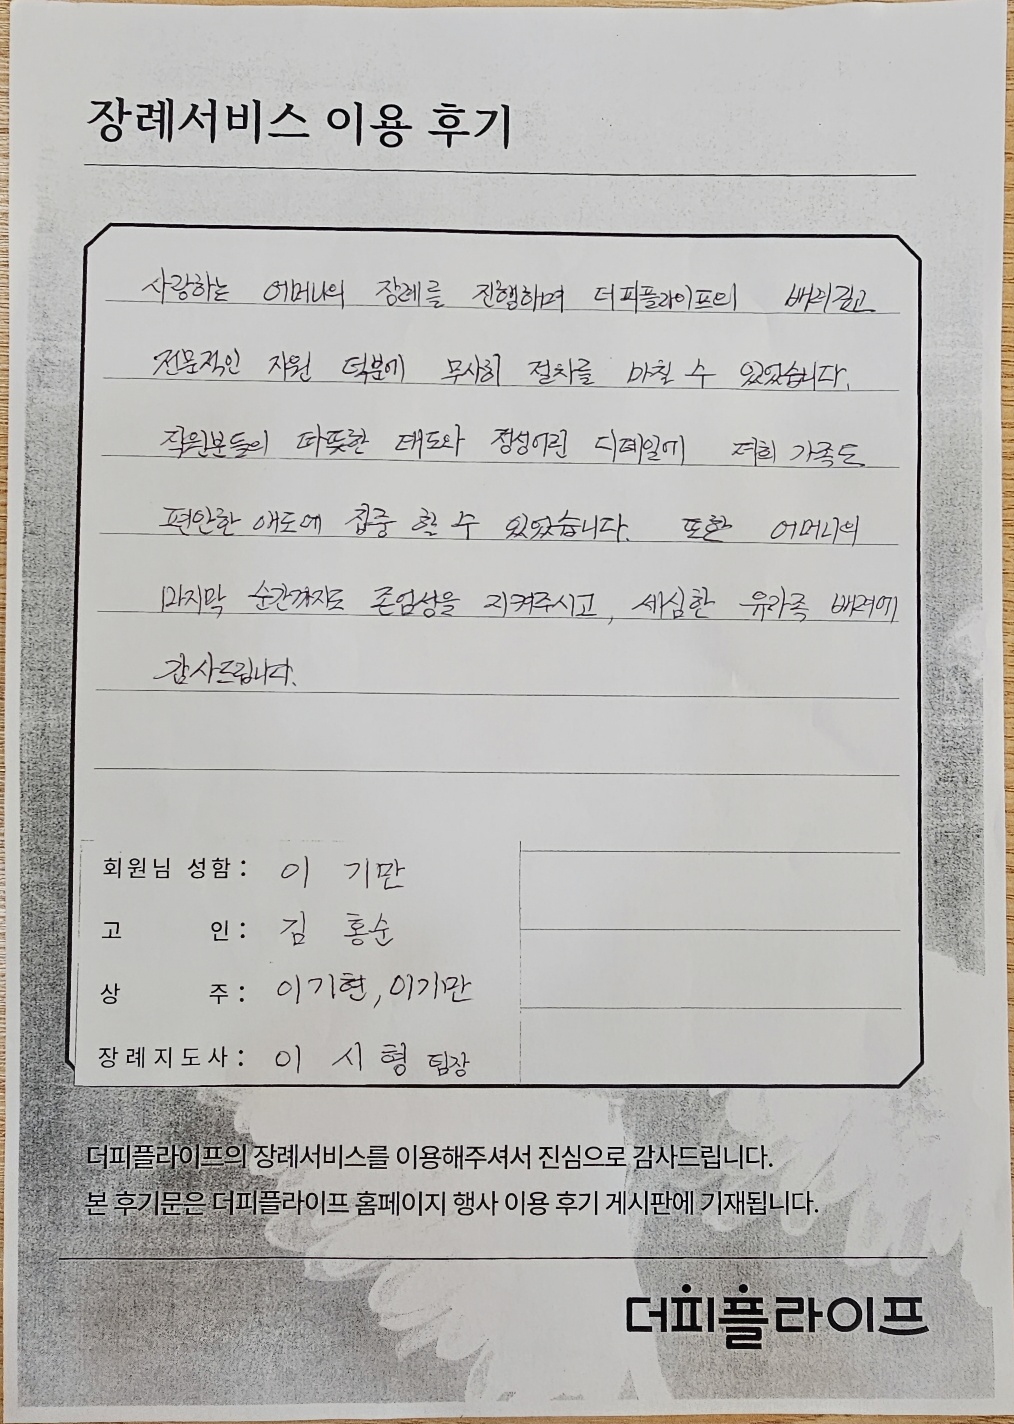 장례서비스 이용 후기
사랑하는 어머니의 장례를 진행하며 더피플라이프의 배려깊고
전문적인 지원 덕분에 무사히 절차를 마칠 수 있었습니다.
직원분들의 따뜻한 태도와 정성어린 디테일에 저희 가족도
편안한 애도에 집중 할 수 있었습니다. 또한 어머니의
마지막 순간까지도 존엄성을 지켜주시고, 세심한 유가족 배려에
감사드립니다.
회원님 성함: 이 기만
고 인: 김 홍순
상 주: 이기현, 이기만
장례지도사: 이 시형 팀장
더피플라이프의 장례서비스를 이용해주셔서 진심으로 감사드립니다.
본 후기문은 더피플라이프 홈페이지 행사 이용 후기 게시판에 기재됩니다.
더피플라이프